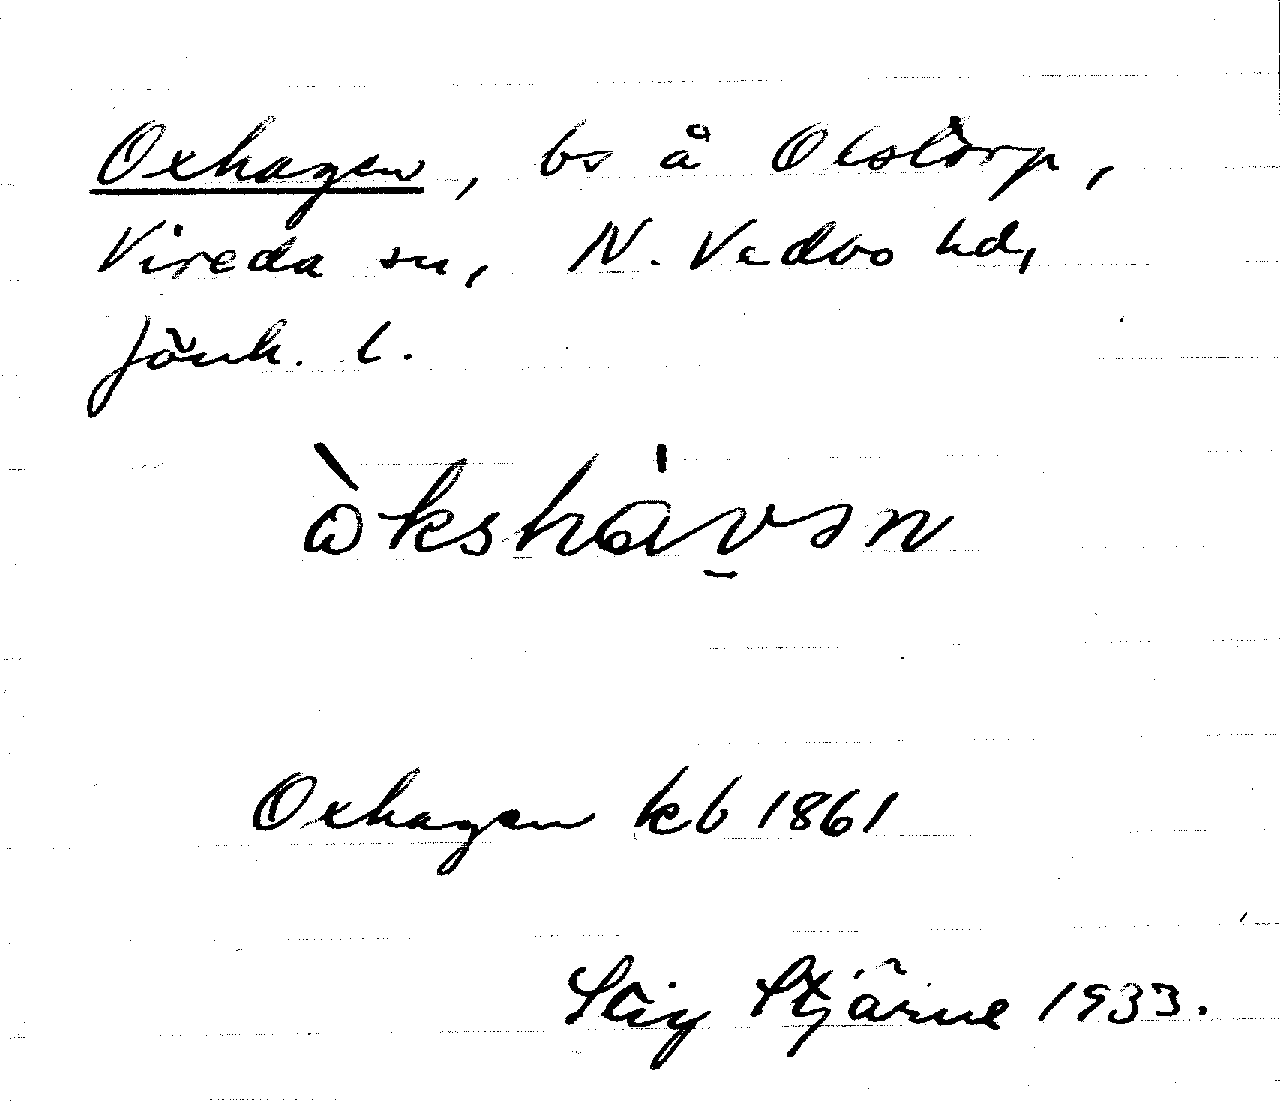 Oxhagen, bs å Olstorp,
Vireda sn, N. Vedbo hd,
Jönk. l.
òkshávən
Oxhagen kb 1861
Stig Stjärne 1933.